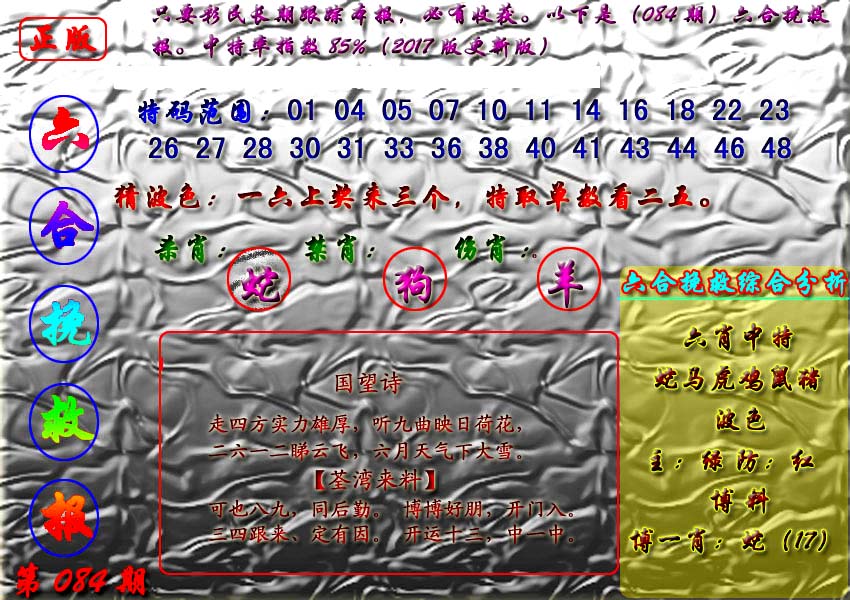 正版
只要彩民长期跟踪本报，必有收获。以下是（084期）六合挽救
报。中特率指数85%（2017版更新版）
六合挽救报
第084期
特码范围：01 04 05 07 10 11 14 16 18 22 23
26 27 28 30 31 33 36 38 40 41 43 44 46 48
猜波色：一六上奖来三个，特取单数看二五。
杀肖：蛇 禁肖：狗 伤肖：羊。
国望诗
走四方实力雄厚，听九曲映日荷花，
二六一二睇云飞，六月天气下大雪。
【荃湾来料】
可也八九，同后勤。 博博好朋，开门入。
三四跟来、定有因。 开运十三，中一中。
六合挽救综合分析
六肖中特
蛇马虎鸡鼠猪
波色
主：绿防：红
博料
博一肖：蛇（17）